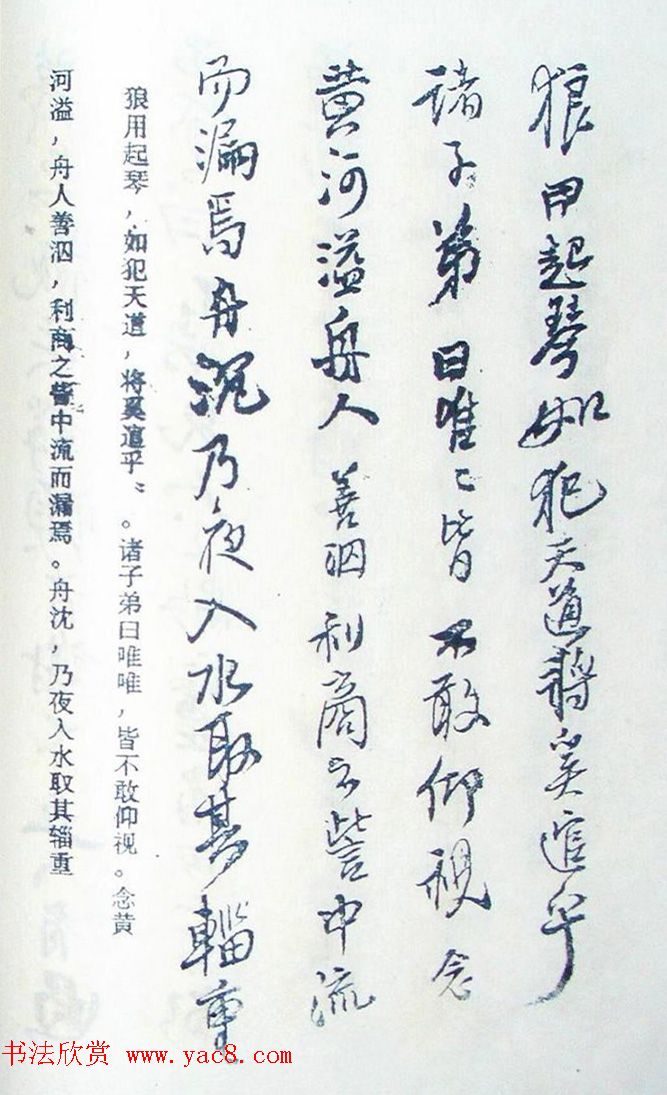 狼甲起琴如犯天道將奚逭乎
诸子弟曰唯〻皆不敢仰視念
黄河溢舟人善泅利商之訾中流
而漏焉舟沉乃夜入水取其輜重
狼用起琴,如犯天道,将奚逭乎〻。诸子弟曰唯唯,皆不敢仰视。念黄
河溢,舟人善泅,利商之訾中流而漏焉。舟沈,乃夜入水取其辎重
书法欣赏 www.yac8.com